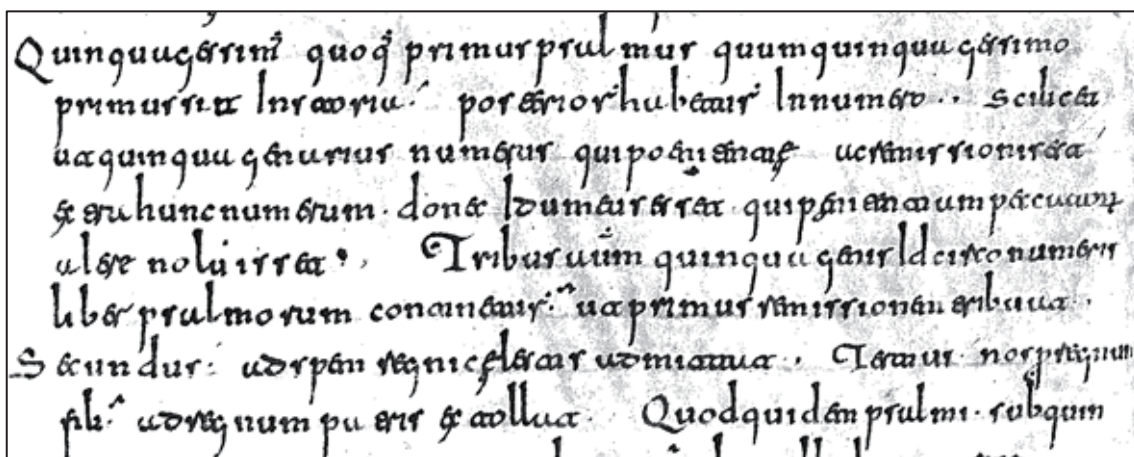 Quinquagessim' quoq' primus psalmus quum quinquagessimo
primus sit In storia posterior habetur In numero. Scilicet
ut quinquagenarius numerus qui poenitentie remissionis
hunc numerum. donec Idumeus esset qui penitentium peccatorum
noluisset. Tribus quinquagenis Idcirco numeris
liber psalmorum continetur ut primus remissionem tribuat.
Secundus: ad spem regni celestis admittat. Tertius nos
fili: ad regnum patris et tollat. Quod quidem psalmi. sub quin